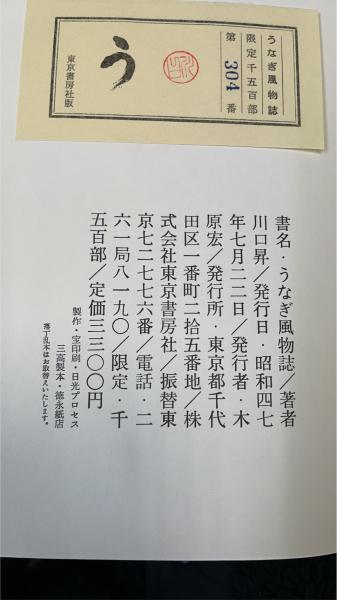 うなぎ風物誌
限定千五百部
第 304 番
う
東京書房社版
書名・うなぎ風物誌/著者
川口昇/発行日・昭和四七
年七月二二日/発行者・木
原宏/発行所・東京都千代
田区一番町二拾五番地/株
式会社東京書房社/振替東
京七二七七六番/電話・二
六一局八一九〇/限定・千
五百部/定価三三〇〇円
製作・宝印刷・日光プロセス
三高製本・徳永紙店
落丁乱本はお取替えいたします。